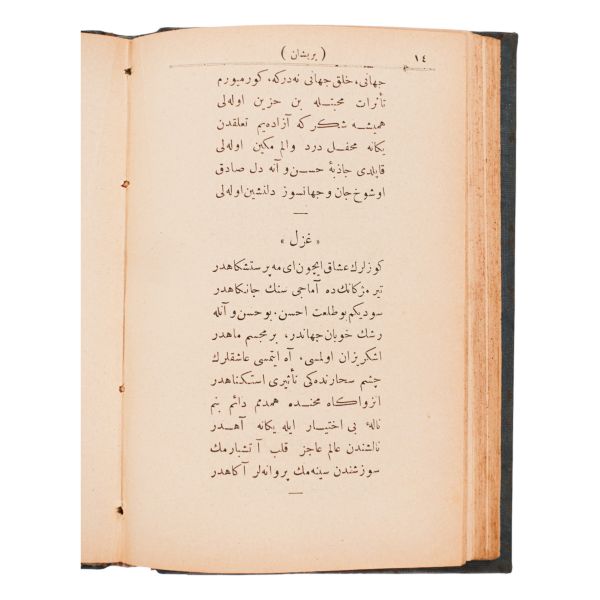 ١٤
( پریشان )
جهانی، خلق جهانی نه‌درکه، کورمیورم
تأثرات محبتله بن حزین اوله‌لی
همیشه شکر که آزاده‌یم تعلقدن
یکانه محفل درد والم مکین اوله‌لی
قاپلدی جاذبۀ حسن و آنه دل صادق
اوشوخ جان و جهانسوز دلنشین اوله‌لی
« غزل »
کوزلرك عشاق ایچون ای مه پرستشکاهدر
تیر مژکانك ده آماجی سنك جانکاهدر
سودیکم بو طلعت احسن. بو حسن و آنله
رشك خوبان جهاندر، بر مجسم ماهدر
اشکریزان اولمسی. آه ایتمسی عاشقلرك
چشم سحارنده‌کی تأثیری استکناهدر
انزواکاه محنده همدمم دائم بنم
نالۀ بی اختیار ایله یکانه آهدر
نالشندن عالم عاجز قلب آتشبارمك
سوزشندن سینه‌مك پروانه‌لر آکاهدر